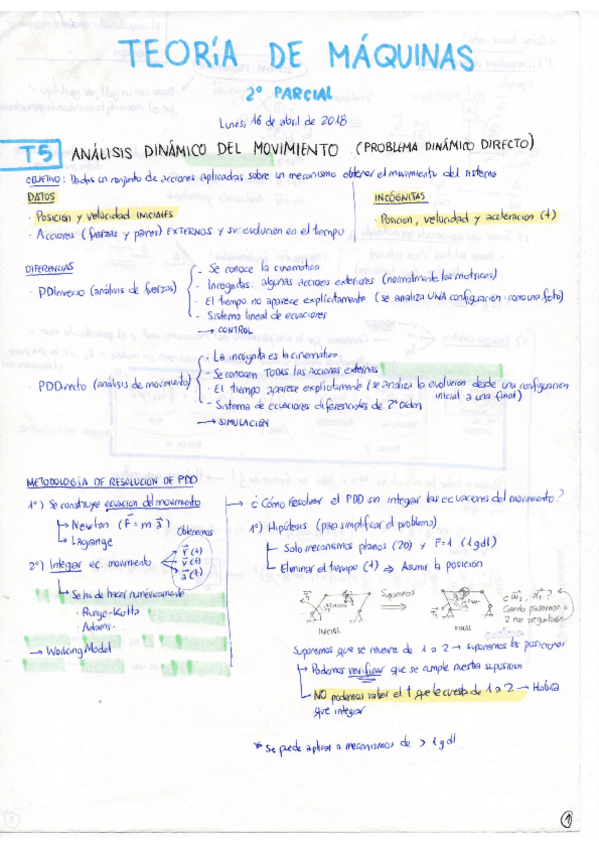 TEORÍA DE MÁQUINAS
2º PARCIAL
Lunes, 16 de abril de 2018
T5 ANÁLISIS DINÁMICO DEL MOVIMIENTO (PROBLEMA DINÁMICO DIRECTO)
OBJETIVO: Dadas un conjunto de acciones aplicadas sobre un mecanismo obtener el movimiento del sistema
DATOS
· Posición y velocidad INICIALES
· Acciones (fuerzas y pares) EXTERNOS y su evolución en el tiempo
INCÓGNITAS
· Posición, velocidad y aceleración (t)
DIFERENCIAS
· PDInverso (análisis de fuerzas)
- Se conoce la cinemática
- Incógnitas: algunas acciones exteriores (normalmente las motrices)
- El tiempo no aparece explícitamente (se analiza UNA configuración como una foto)
- Sistema lineal de ecuaciones
→ CONTROL
· PDDirecto (análisis de movimiento)
- La incógnita es la cinemática
- Se conocen TODAS las acciones externas
- El tiempo aparece explícitamente (se analiza la evolución desde una configuración
inicial a una final)
- Sistema de ecuaciones diferenciales de 2º Orden
→ SIMULACIÓN
METODOLOGÍA DE RESOLUCIÓN DE PDD
1º) Se construye ecuación del movimiento
→ Newton (F = m·a)
→ Lagrange
Obtenemos
2º) Integrar ec. movimiento
r (t)
v (t)
a (t)
→ Se ha de hacer numéricamente
· Runge-Kutta
· Adams...
→ Working Model
→ ¿Cómo resolver el PDD sin integrar las ecuaciones del movimiento?
1º) Hipótesis (para simplificar el problema)
- Solo mecanismos planos (2D) y F=1 (1 gdl)
- Eliminar el tiempo (t) ⇒ Asumir la posición
Suponemos
INICIAL
FINAL
Cuando pasemos a
2 nos preguntan
Suponemos que se mueve de 1 a 2 → suponemos las posiciones
→ Podemos verificar que se cumple nuestra suposición
→ NO podemos saber el t que le cuesta de 1 a 2 → Habría
que integrar
* Se puede aplicar a mecanismos de > 1 gdl
1